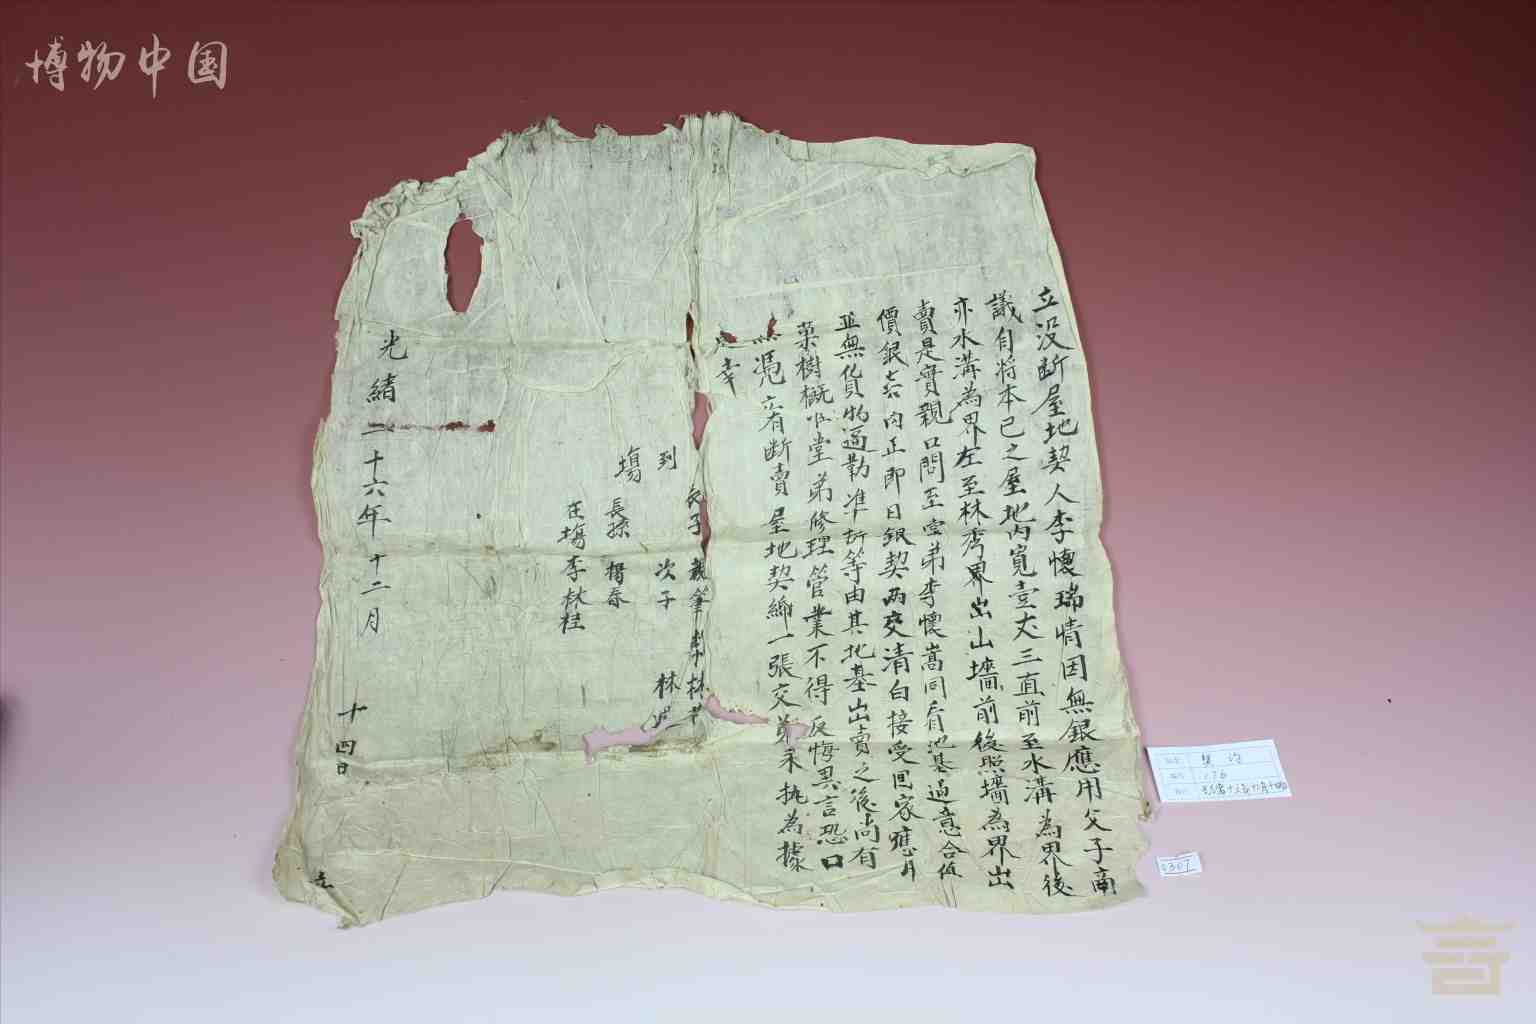 博物中国
立没断屋地契人李懷瑞情因無銀應用父子商
議自將本已之屋地內寬壹丈三直前至水溝為界後
亦水溝為界左至林秀界出山墻前後照墻為界出
賣是實親口問至堂弟李懷嵩同看地基過意合值
價銀 肉正即日銀契兩交清白接受回家應用
並無貨物逼勒準折等由其地基出賣之後尚有
菓樹概 堂弟修理管業不得反悔異言恐口
無憑立有断賣屋地契 一張交弟永執為據
幸
長子 親筆 林
到 次子 林
塲 長孫 楊春
在塲李林桂
光緒二十六年十二月 十四日
立
契 约
176
0307